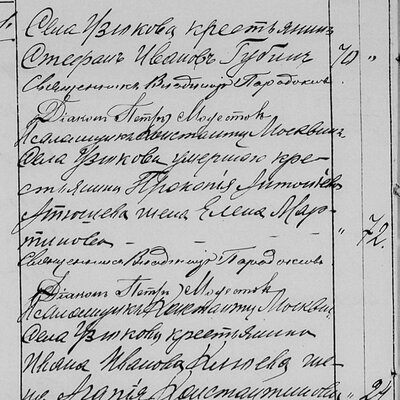 Села Узюкова крестьянинъ
Стефанъ Ивановъ Губинъ 70 "
Священникъ Владиміръ Парадоксовъ
Діаконъ Петръ Модестовъ
Псаломщикъ Константинъ Москвинъ
Села Узюкова умершаго кре-
стьянина Прокопія Антоньева
жена Елена Мар- "
тинова - - - - 72.
Священникъ Владиміръ Парадоксовъ
Діаконъ Петръ Модестовъ
Псаломщикъ Константинъ Москвинъ
Села Узюкова крестьянина
Ивана Иванова же-
на Агапія Константинова " 24